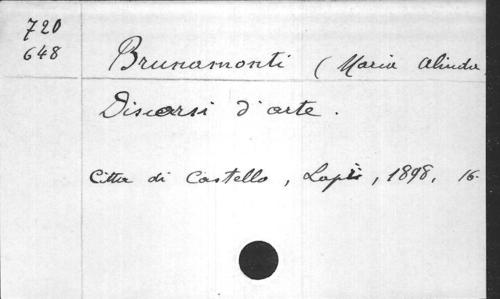 720
648
Brunamonti (Maria Alinda
Discorsi d'arte.
Citta di Castello, Lapi, 1898, 16.